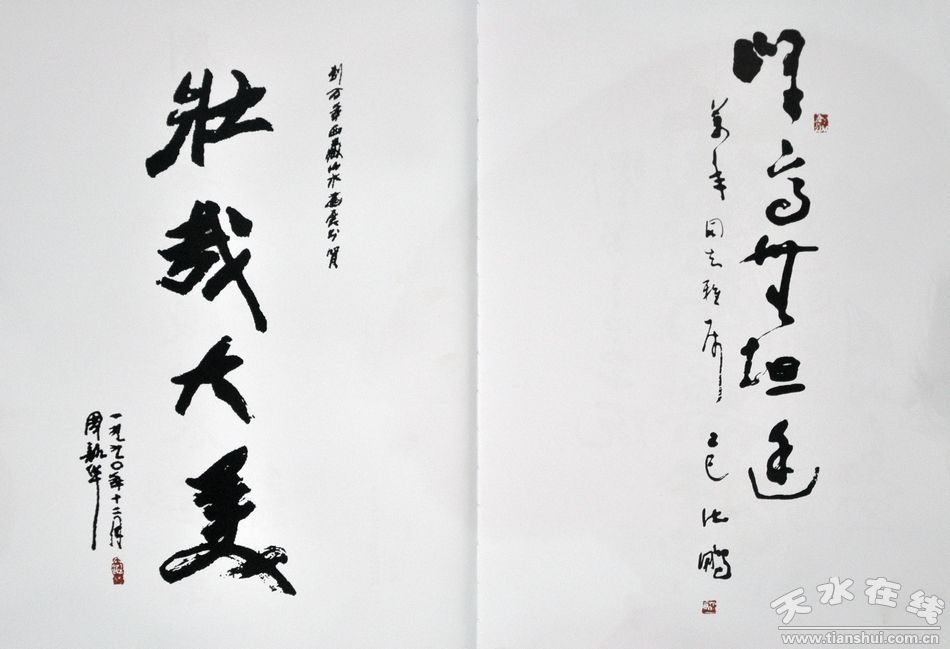 峰高無坦途
萬年同志雅属 乙巳 沈鹏
刘万年西藏山水画展志贺
壮哉大美
一九九〇年十二月
周韶华
天水在线
www.tianshui.com.cn